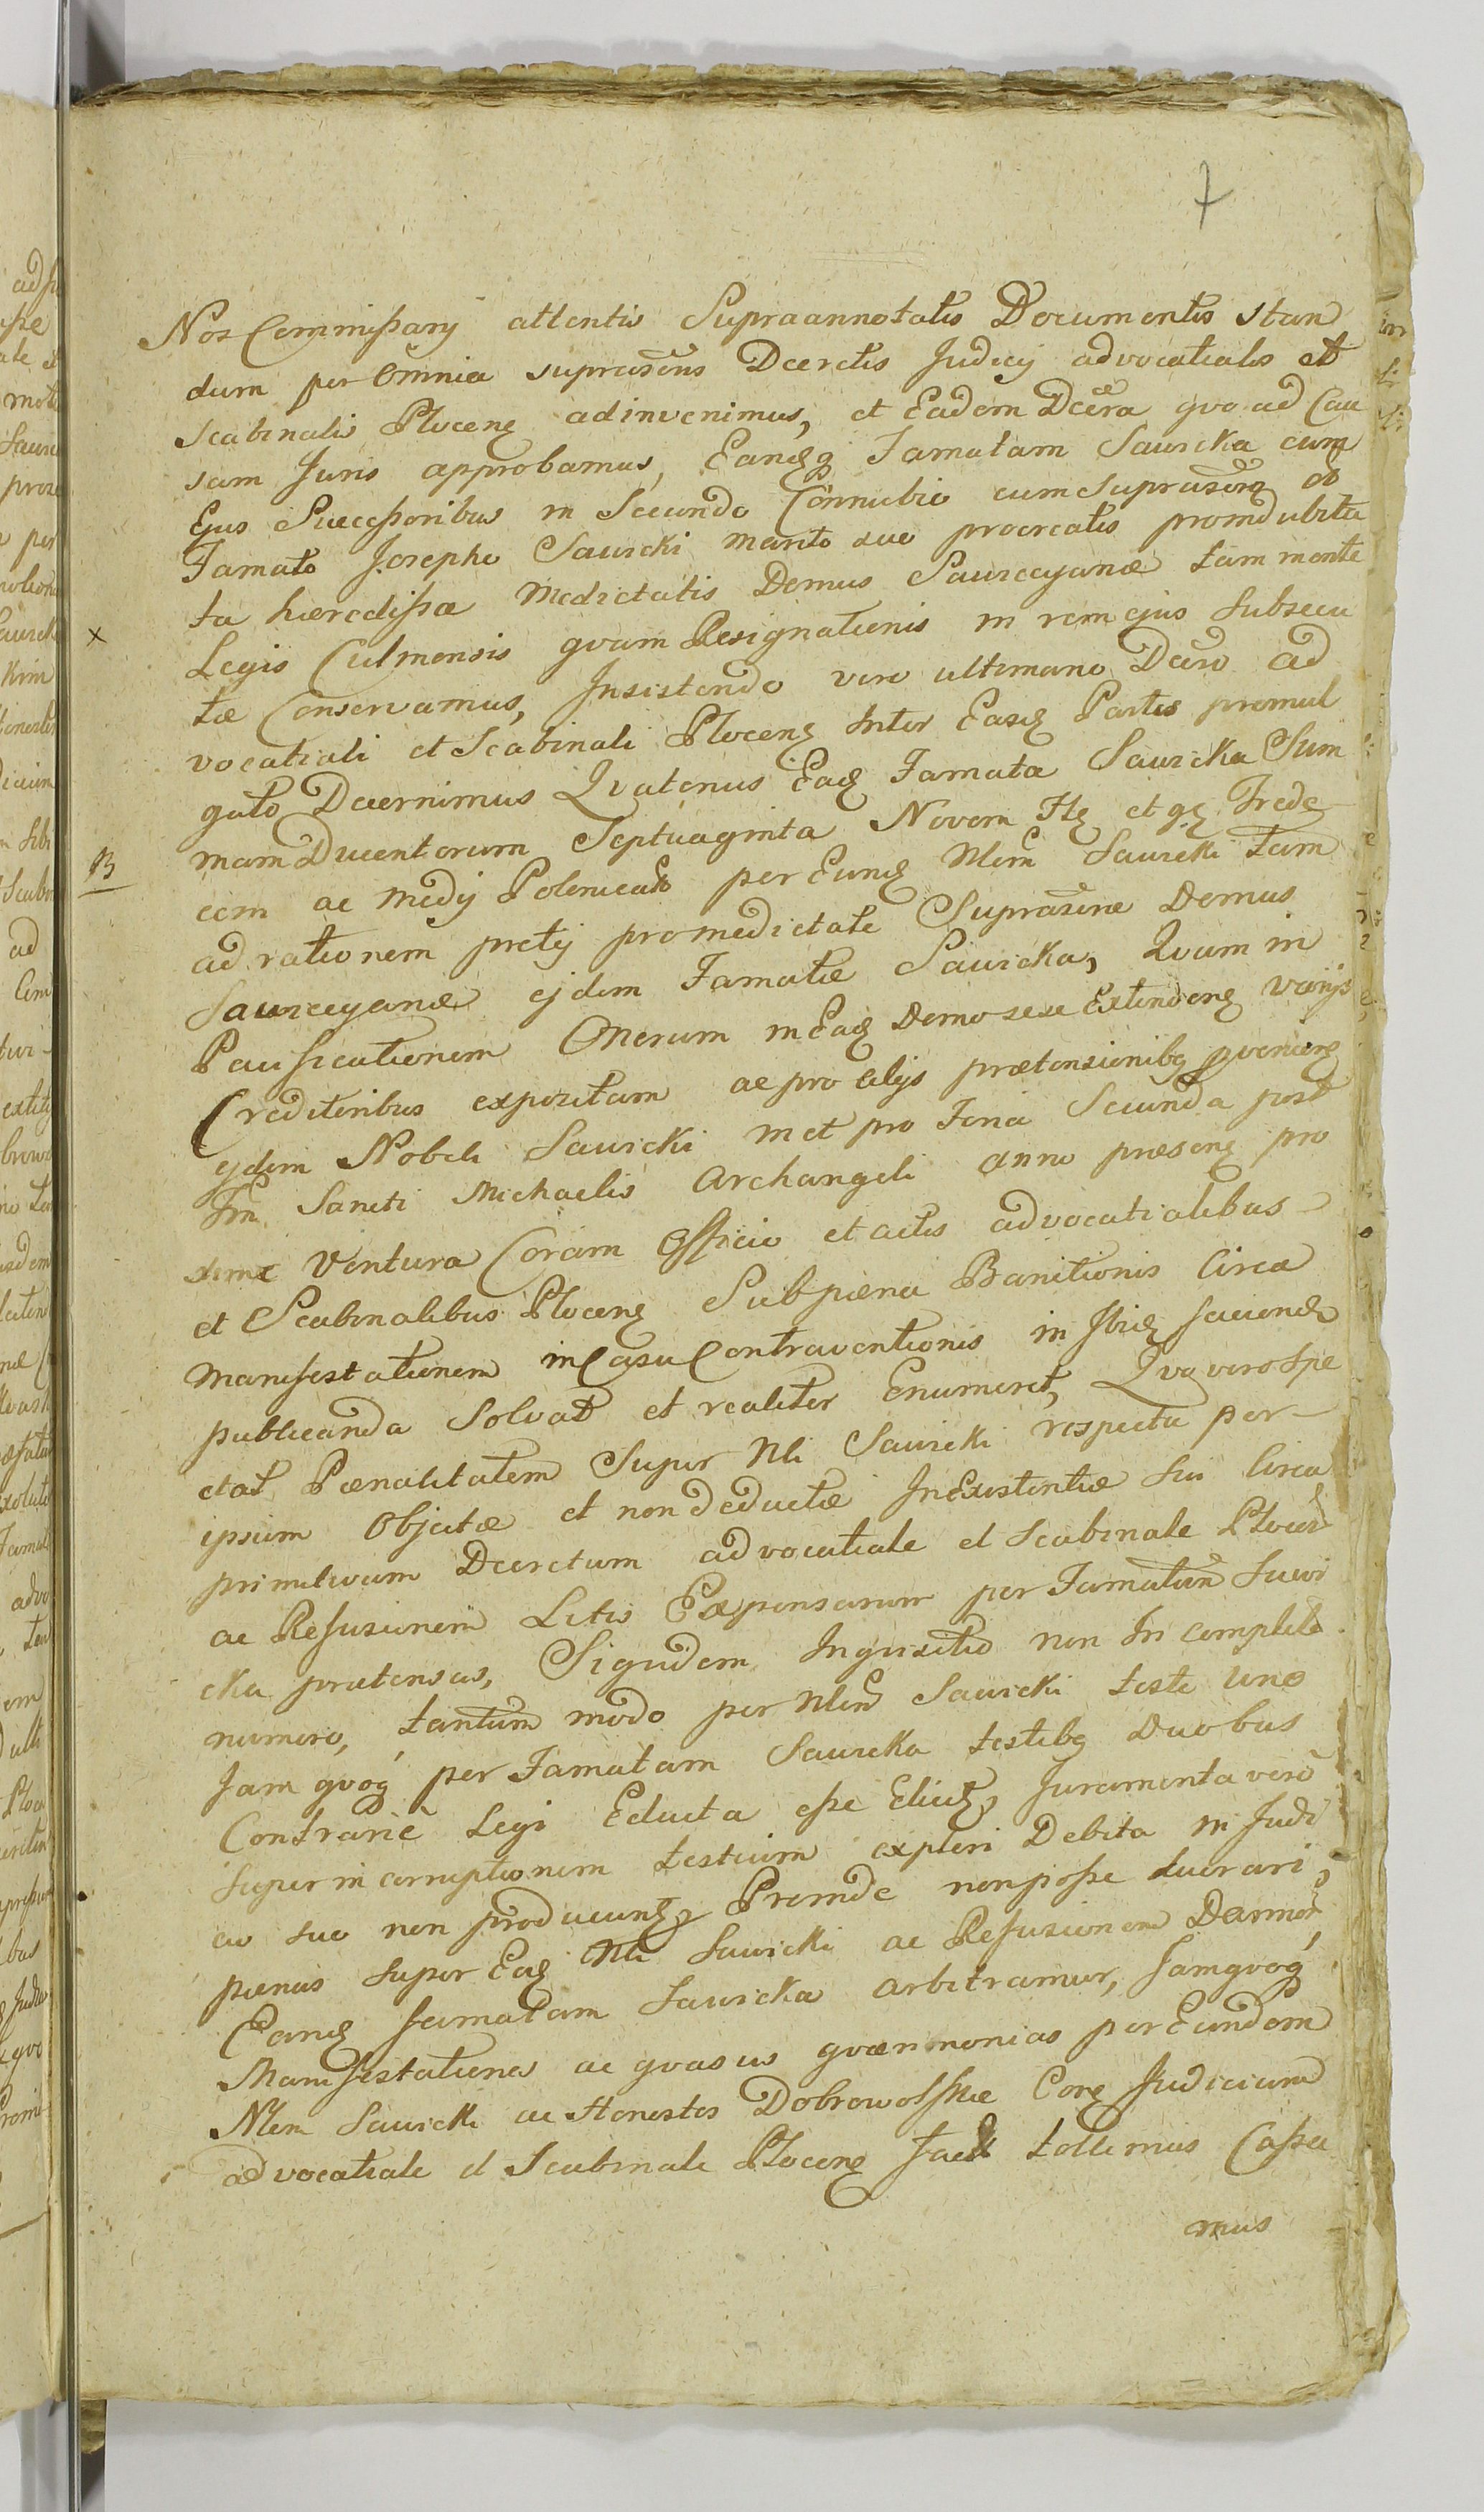 7
Nos Commissarij attentis Supraannotatis Documentis stan
dum per Omnia suprascriptis Decretis Judicij advocatialis et
Scabinalis Plocens adinvenimus, et Eadem Decreta qvo ad Cau
sam Juris approbamus, Eandq Famatam Sawicka cum
Ejus Successoribus in Secundo Connubio cum Suprascr ob
Famato Josepho Sawicki marito suo procreatis pro indubita
ta hæredissa Medietatis Domus Sawiccyanæ tam mente
x Legis Culmensis qvam Resignationis in rem ejus subsecu
tæ Conservamus, Insistendo vero ultimario Decreto ad
vocatiali et Scabinali Plocens Inter Easd Partes promul
gato Decernimus Qvatenus Ead Famata Sawicka Sum
B mam Ducentorum Septuaginta Novem Fls et gs Trede
cem ac medij Polonical per Eund Nlem Sawicki tam
ad rationem pretij pro medietate Suprascriptæ Domus
Sawiccyanæ ejdem Famatæ Sawicka, Qvam in
Pacificationem Onerum in Ead Domo sese Extenden varijs
Creditoribus expositam ac pro alijs prætensionibq
ejdem Nobili Sawicki in et pro Feria Secunda post
Fm Sancti Michaelis Archangeli anno præsenq pro
xime Ventura Coram Officio et actis advocatialibus
et Scabinalibus Plocens Sub pæna Banitionis Circa
Manifestationem in Casu Contraventionis in Ibid faciend
publicanda Solvat et realiter Enumeret, Qvo vero spe
ctat Pœnalitatem Super Nli Sawicki respectu per
ipsum Objectæ et non deductæ Inexistentiæ sui Circa
primitivum Decretum advocatiale et Scabinale Plocen
ac Refusionem Litis Expensarum per Famatam Sawi
cka prætensas, Siqvidem Inqvisitio non in completo
numero, tantum modo per Nlem Sawicki teste uno
Jam qvoq per Famatam Sawicka testibq Duobus
Contrariè Legi Educta esse Elicit, Juramenta verò
super in corruptionem testium expleri Debita in Judi
cio suo non producunt, Proinde non posse lucrari,
pænas super Ead Nli Sawicki ac Refusionem Damnor
Eand famatam Sawicka arbitramur, Jam qvoq
Manifestationes ac qvasvis qværimonias per Eundem
Nlem Sawicki ac Honestos Dobrowolskie Corq Judicium
advocatiale et Scabinale Plocens fact tollimus Cassa
mus